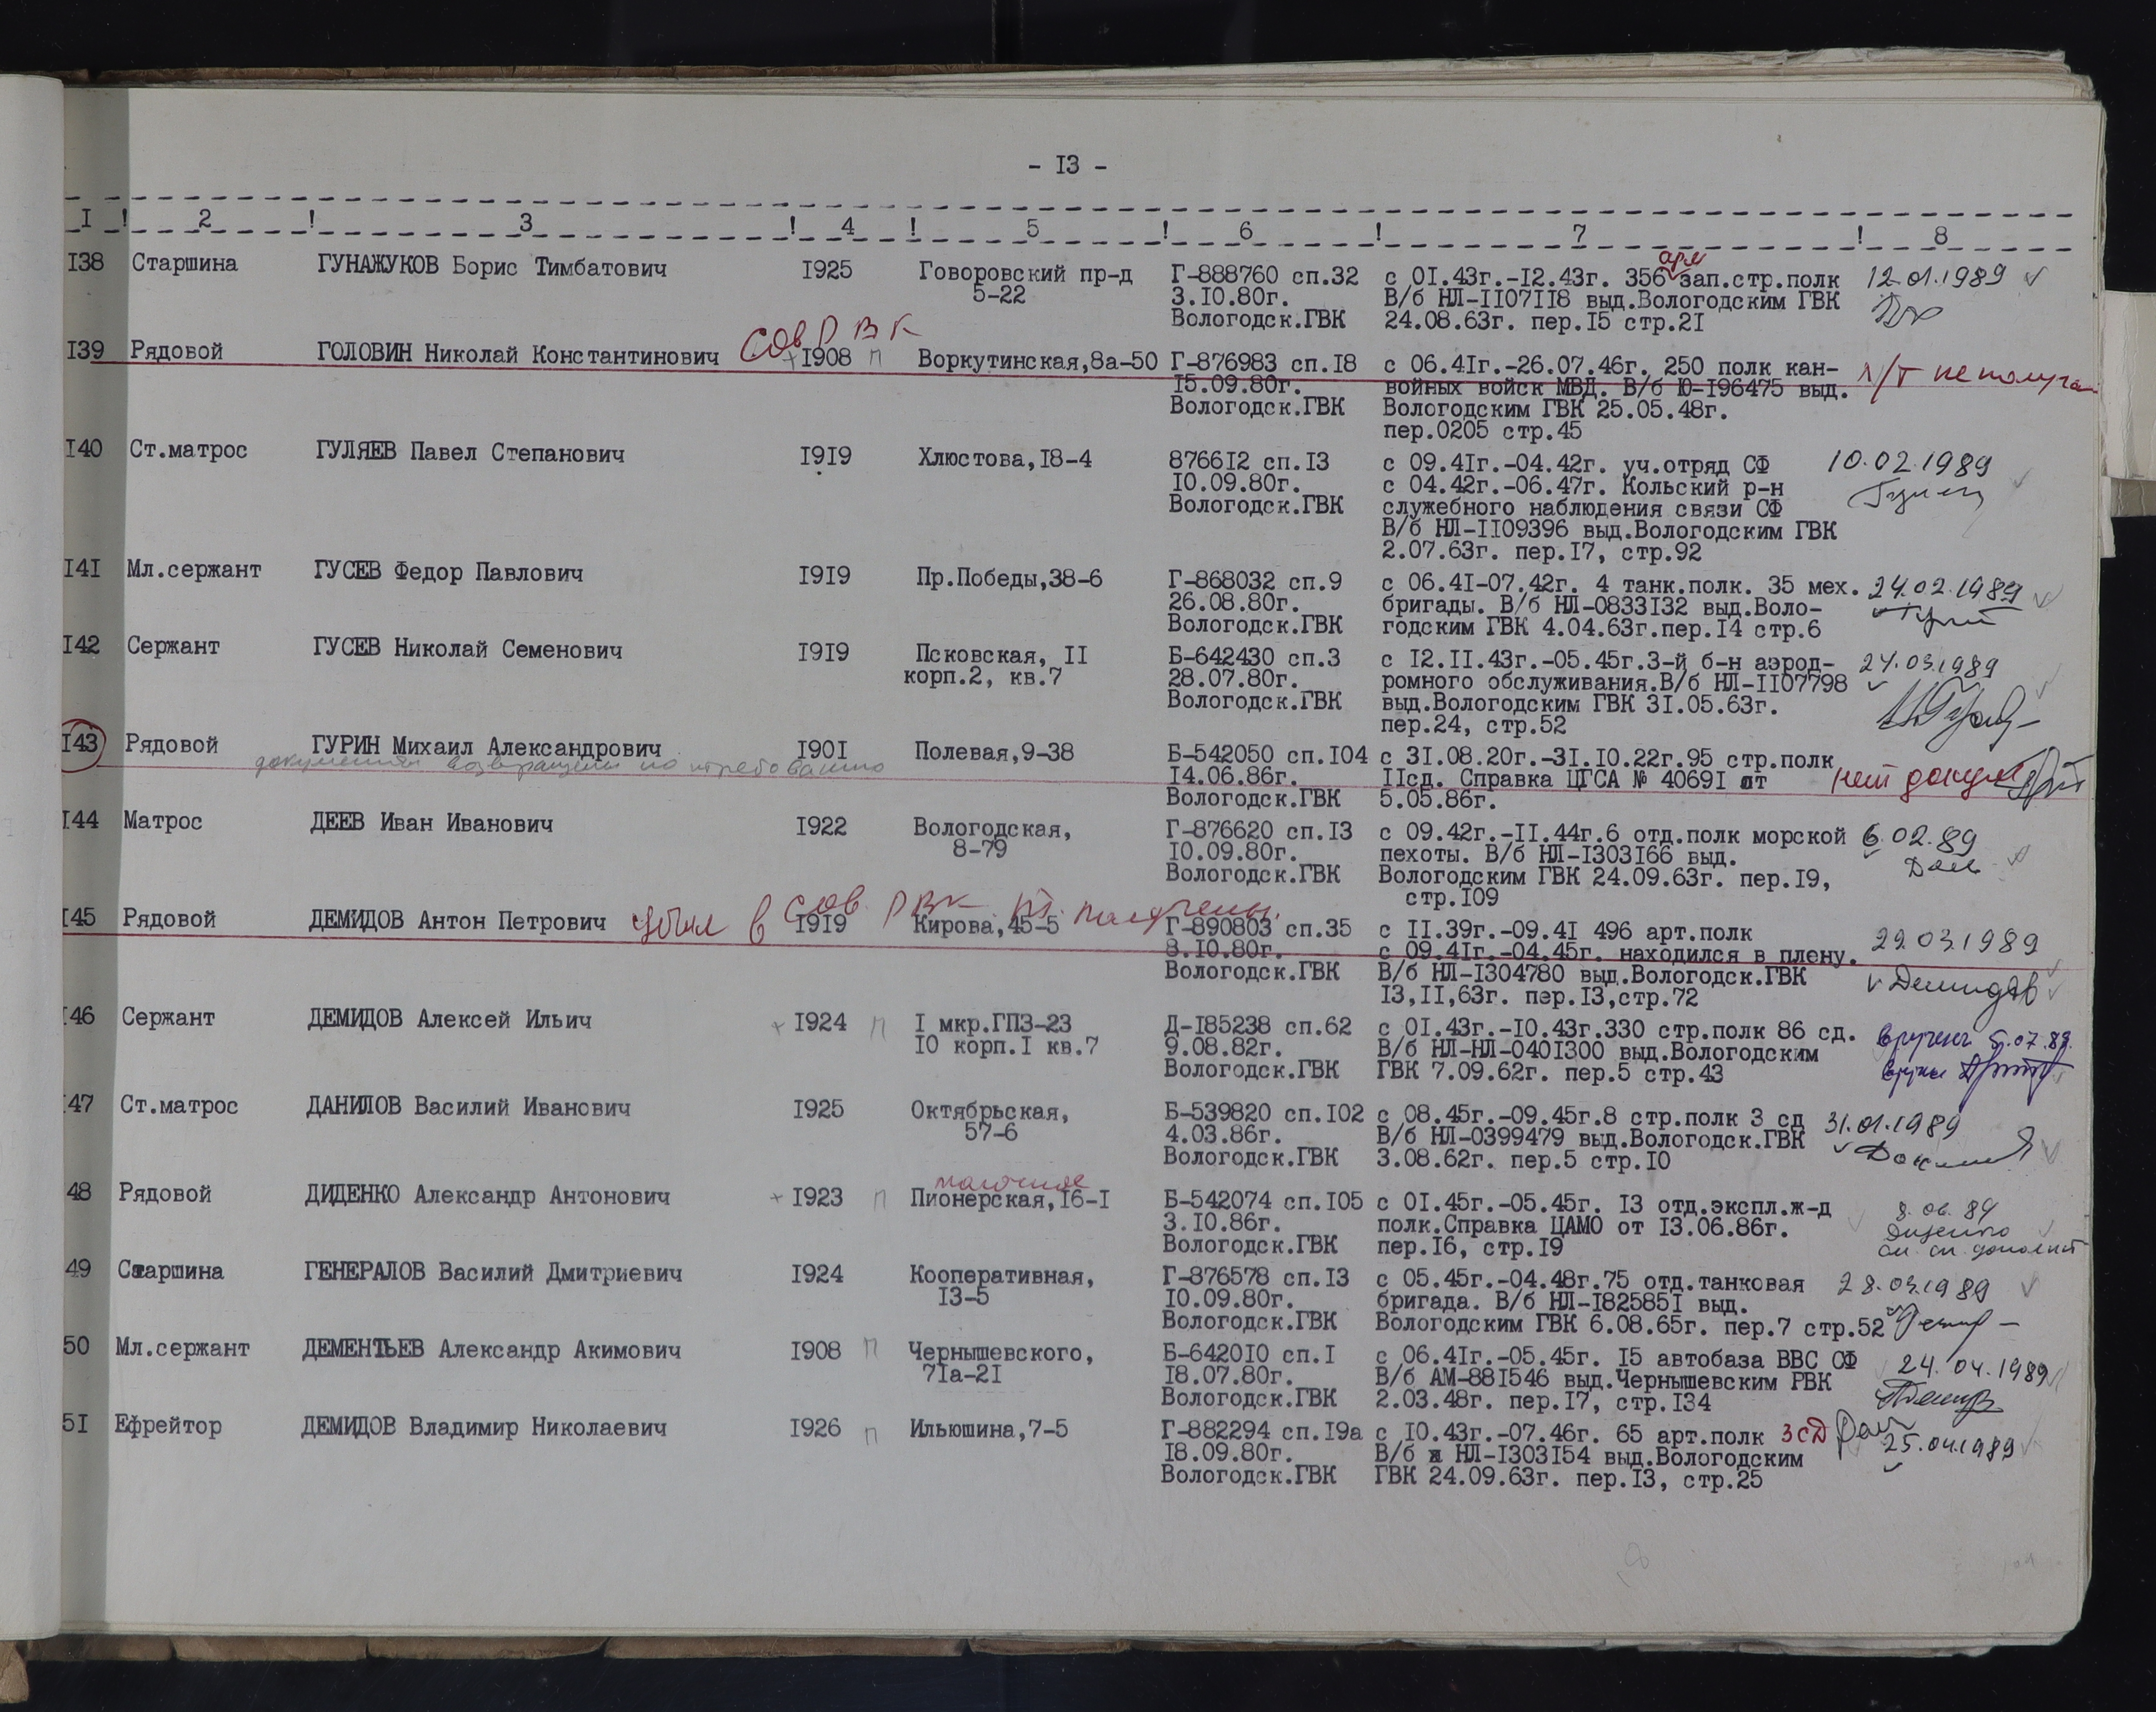 - I3 -
I ! 2 ! 3 ! 4 ! 5 ! 6 ! 7 ! 8
I38 Старшина ГУНАЖУКОВ Борис Тимбатович I925 Говоровский пр-д Г-888760 сп.32 с 0I.43г.-I2.43г. 356 арт зап.стр.полк 12.01.1989
5-22 3.I0.80г. В/б НЛ-II07II8 выд.Вологодским ГВК
Вологодск.ГВК 24.08.63г. пер.I5 стр.2I
Сов РВК
I39 Рядовой ГОЛОВИН Николай Константинович I908 п Воркутинская,8а-50 Г-876983 сп.I8 с 06.4Iг.-26.07.46г. 250 полк кан-
I5.09.80г. войных войск МВД. В/б Ю-I96475 выд.
Вологодск.ГВК Вологодским ГВК 25.05.48г.
пер.0205 стр.45
I40 Ст.матрос ГУЛЯЕВ Павел Степанович I9I9 Хлюстова,I8-4 8766I2 сп.I3 с 09.4Iг.-04.42г. уч.отряд СФ 10.02.1989
I0.09.80г. с 04.42г.-06.47г. Кольский р-н
Вологодск.ГВК служебного наблюдения связи СФ
В/б НЛ-II09396 выд.Вологодским ГВК
2.07.63г. пер.I7, стр.92
I4I Мл.сержант ГУСЕВ Федор Павлович I9I9 Пр.Победы,38-6 Г-868032 сп.9 с 06.4I-07.42г. 4 танк.полк. 35 мех. 24.02.1989
26.08.80г. бригады. В/б НЛ-0833I32 выд.Воло-
Вологодск.ГВК годским ГВК 4.04.63г.пер.I4 стр.6
I42 Сержант ГУСЕВ Николай Семенович I9I9 Псковская, II Б-642430 сп.3 с I2.II.43г.-05.45г.3-й б-н аэрод- 24.03.1989
корп.2, кв.7 28.07.80г. ромного обслуживания.В/б НЛ-II07798
Вологодск.ГВК выд.Вологодским ГВК 3I.05.63г.
пер.24, стр.52
I43 Рядовой ГУРИН Михаил Александрович I90I Полевая,9-38 Б-542050 сп.I04 с 3I.08.20г.-3I.I0.22г.95 стр.полк
документы возвращены по требованию I4.06.86г. IIсд. Справка ЦГСА № 4069I от нет докум
Вологодск.ГВК 5.05.86г.
I44 Матрос ДЕЕВ Иван Иванович I922 Вологодская, Г-876620 сп.I3 с 09.42г.-II.44г.6 отд.полк морской 6.02.89
8-79 I0.09.80г. пехоты. В/б НЛ-I303I66 выд.
Вологодск.ГВК Вологодским ГВК 24.09.63г. пер.I9,
стр.I09
убыл в Сов РВК
I45 Рядовой ДЕМИДОВ Антон Петрович I9I9 Кирова,45-5 Г-890803 сп.35 с II.39г.-09.4I 496 арт.полк 29.03.1989
8.I0.80г. с 09.4Iг.-04.45г. находился в плену.
Вологодск.ГВК В/б НЛ-I304780 выд.Вологодск.ГВК Демидов
I3,II,63г. пер.I3,стр.72
I46 Сержант ДЕМИДОВ Алексей Ильич I924 п I мкр.ГПЗ-23 Д-I85238 сп.62 с 0I.43г.-I0.43г.330 стр.полк 86 сд. 5.07.89.
I0 корп.I кв.7 9.08.82г. В/б НЛ-НЛ-040I300 выд.Вологодским
Вологодск.ГВК ГВК 7.09.62г. пер.5 стр.43
I47 Ст.матрос ДАНИЛОВ Василий Иванович I925 Октябрьская, Б-539820 сп.I02 с 08.45г.-09.45г.8 стр.полк 3 сд 31.01.1989
57-6 4.03.86г. В/б НЛ-0399479 выд.Вологодск.ГВК
Вологодск.ГВК 3.08.62г. пер.5 стр.I0
молочное
48 Рядовой ДИДЕНКО Александр Антонович I923 п Пионерская,I6-I Б-542074 сп.I05 с 0I.45г.-05.45г. I3 отд.экспл.ж-д 8.06.89
3.I0.86г. полк.Справка ЦАМО от I3.06.86г.
Вологодск.ГВК пер.I6, стр.I9
49 Старшина ГЕНЕРАЛОВ Василий Дмитриевич I924 Кооперативная, Г-876578 сп.I3 с 05.45г.-04.48г.75 отд.танковая 28.03.1989
I3-5 I0.09.80г. бригада. В/б НЛ-I82585I выд.
Вологодск.ГВК Вологодским ГВК 6.08.65г. пер.7 стр.52
50 Мл.сержант ДЕМЕНТЬЕВ Александр Акимович I908 п Чернышевского, Б-6420I0 сп.I с 06.4Iг.-05.45г. I5 автобаза ВВС СФ 24.04.1989
7Iа-2I I8.07.80г. В/б АМ-88I546 выд.Чернышевским РВК
Вологодск.ГВК 2.03.48г. пер.I7, стр.I34
5I Ефрейтор ДЕМИДОВ Владимир Николаевич I926 п Ильюшина,7-5 Г-882294 сп.I9а с I0.43г.-07.46г. 65 арт.полк 3 СД 25.04.1989
I8.09.80г. В/б НЛ-I303I54 выд.Вологодским
Вологодск.ГВК ГВК 24.09.63г. пер.I3, стр.25